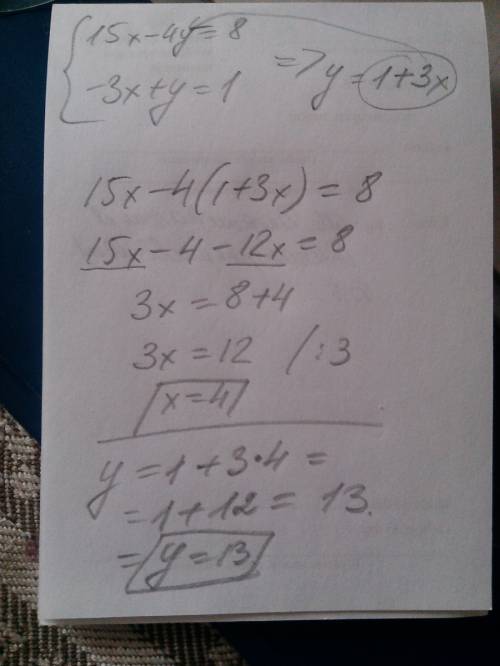 15x-4y=8
-3x+y=1 => y=1+3x
15x-4(1+3x)=8
15x-4-12x=8
3x=8+4
3x=12 /:3
x=4
y=1+3·4=
=1+12=13.
=y=13